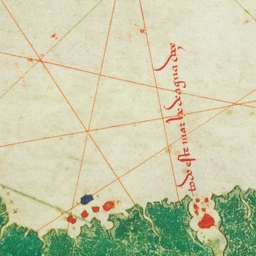 todo este mar he de agua doçe